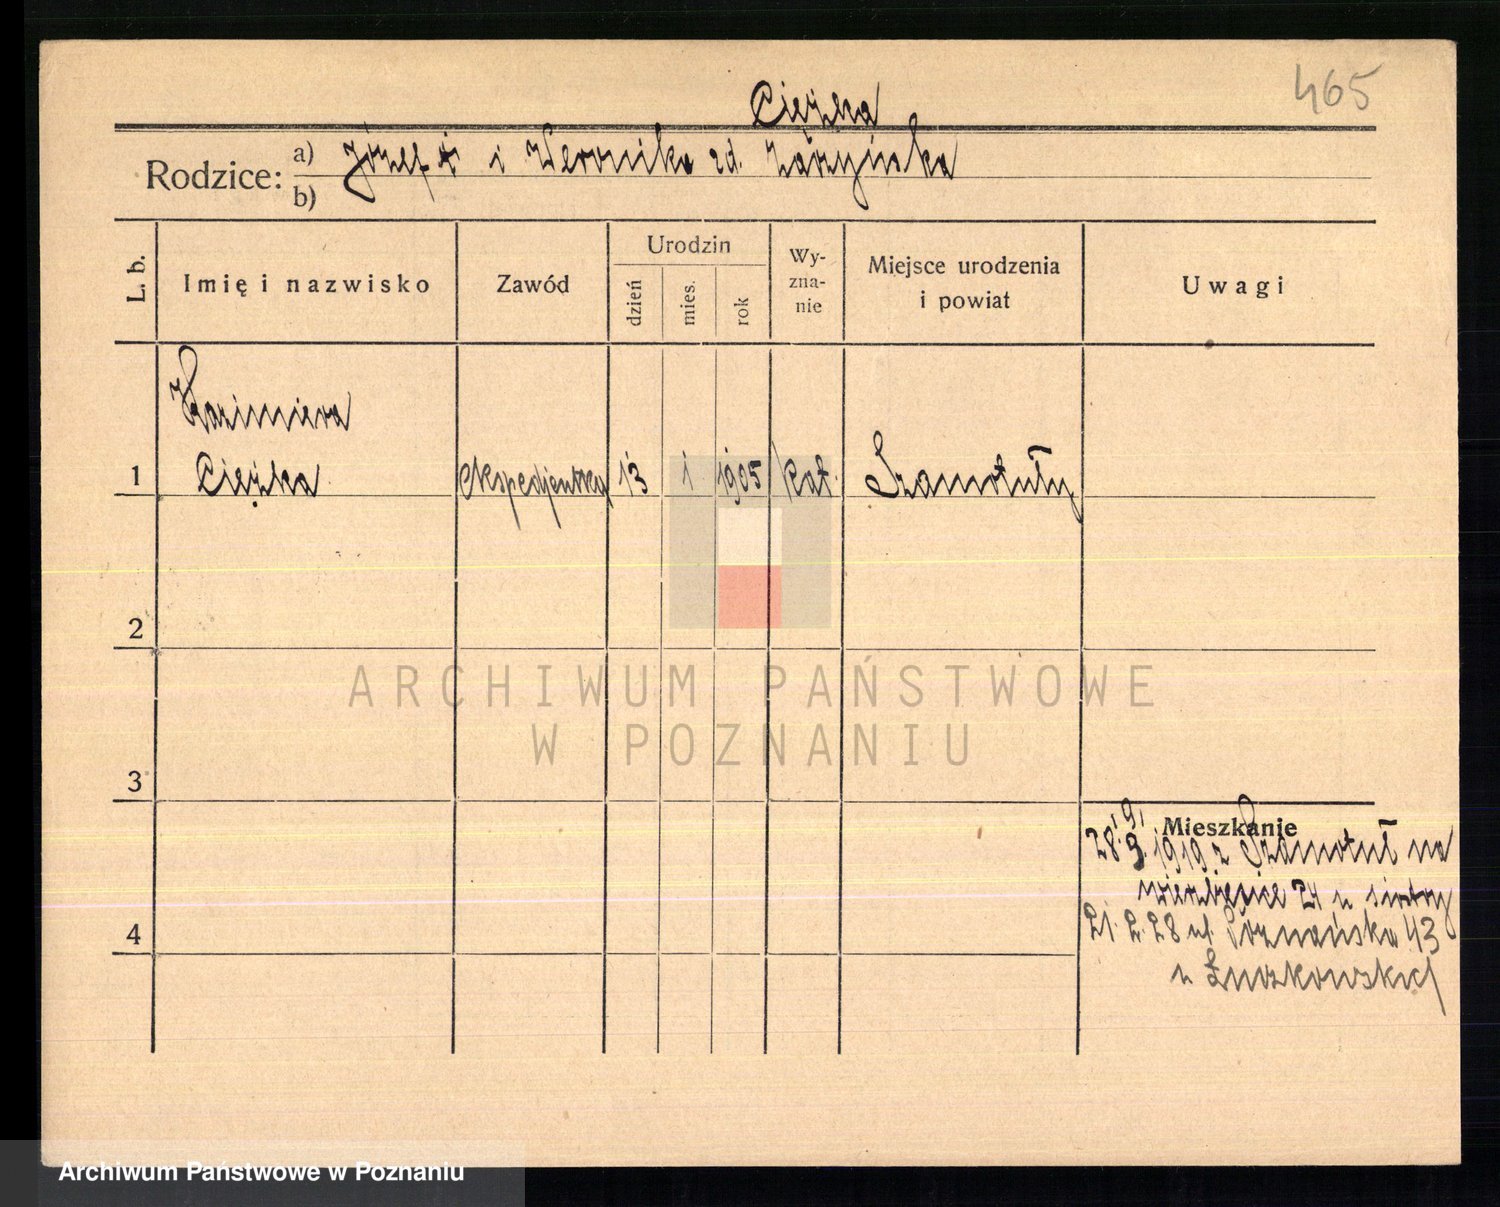 465
Ciężka
Rodzice: a) Józef i Weronika zd. Zarzyńska
b)
L. b. Imię i nazwisko Zawód Urodzin dzień mies. rok Wy-zna-nie Miejsce urodzenia i powiat Uwagi
Kazimiera
1 Ciężka ekspedjentka 13 1 1905 kat. Szamotuły
2
ARCHIWUM PAŃSTWOWE
W POZNANIU
3
Mieszkanie
28. 9. 1919 z Szamotuł na
Wierzbięcice 21 u siostry
21. 2. 28 ul. Poznańska 43
4
u Łuszkowskich
Archiwum Państwowe w Poznaniu